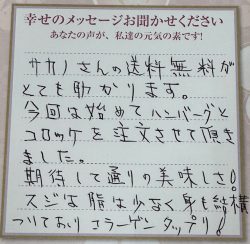 幸せのメッセージお聞かせください
あなたの声が、私達の元気の素です!
サカノさんの送料無料が
とても助かります。
今回は始めてハンバーグと
コロッケを注文させて頂き
ました。
期待して通りの美味しさ!
スジは脂は少なく身も結構
ついており コラーゲンタップリ!